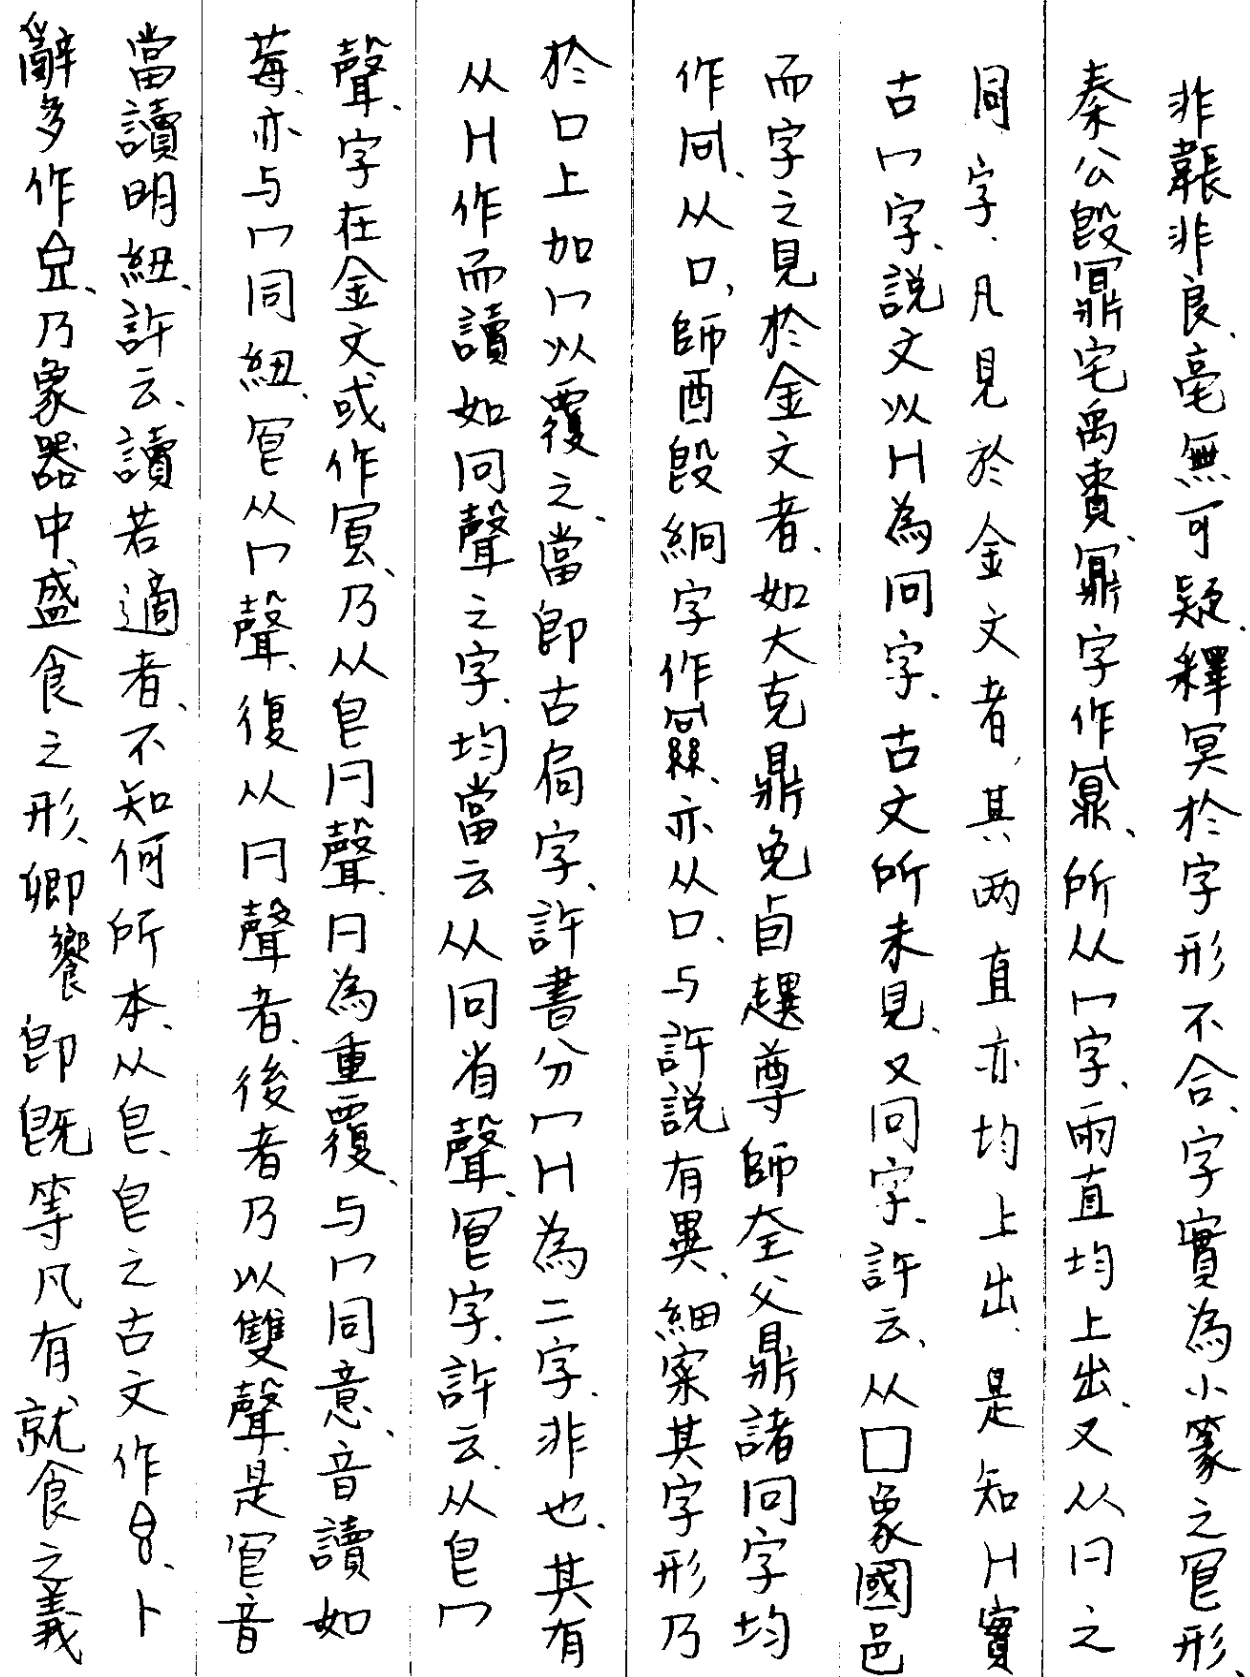 非䵻非良、毫無可疑、釋冥於字形不合、字實為小篆之㝁形、
秦公𣪘鼏宅禹賚、鼏字作鼏、所从冖字、兩直均上出、又从冃之
同字、凡見於金文者、其两直亦均上出、是知H實
古冖字、説文以H為冋字、古文所未見、又冋字、許云、从囗象國邑
而字之見於金文者、如大克鼎免卣趩尊師𡘇父鼎諸冋字均
作冋、从口、師酉𣪘絅字作、亦从口、与許説有異、細案其字形乃
於口上加冖以覆之、當即古扃字、許書分冖H為二字、非也、其有
从H作而讀如冋聲之字、均當云从冋省聲、㝁字、許云、从皀冖
聲、字在金文或作㝁、乃从皀冃聲、冃為重覆、与冖同意、音讀如
莓、亦与冖同紐、㝁从冖聲、復从冃聲者、後者乃以雙聲、是㝁音
當讀明紐、許云、讀若適者、不知何所本、从皀、皀之古文作、卜
辭多作、乃象器中盛食之形、卿饗即既等凡有就食之義